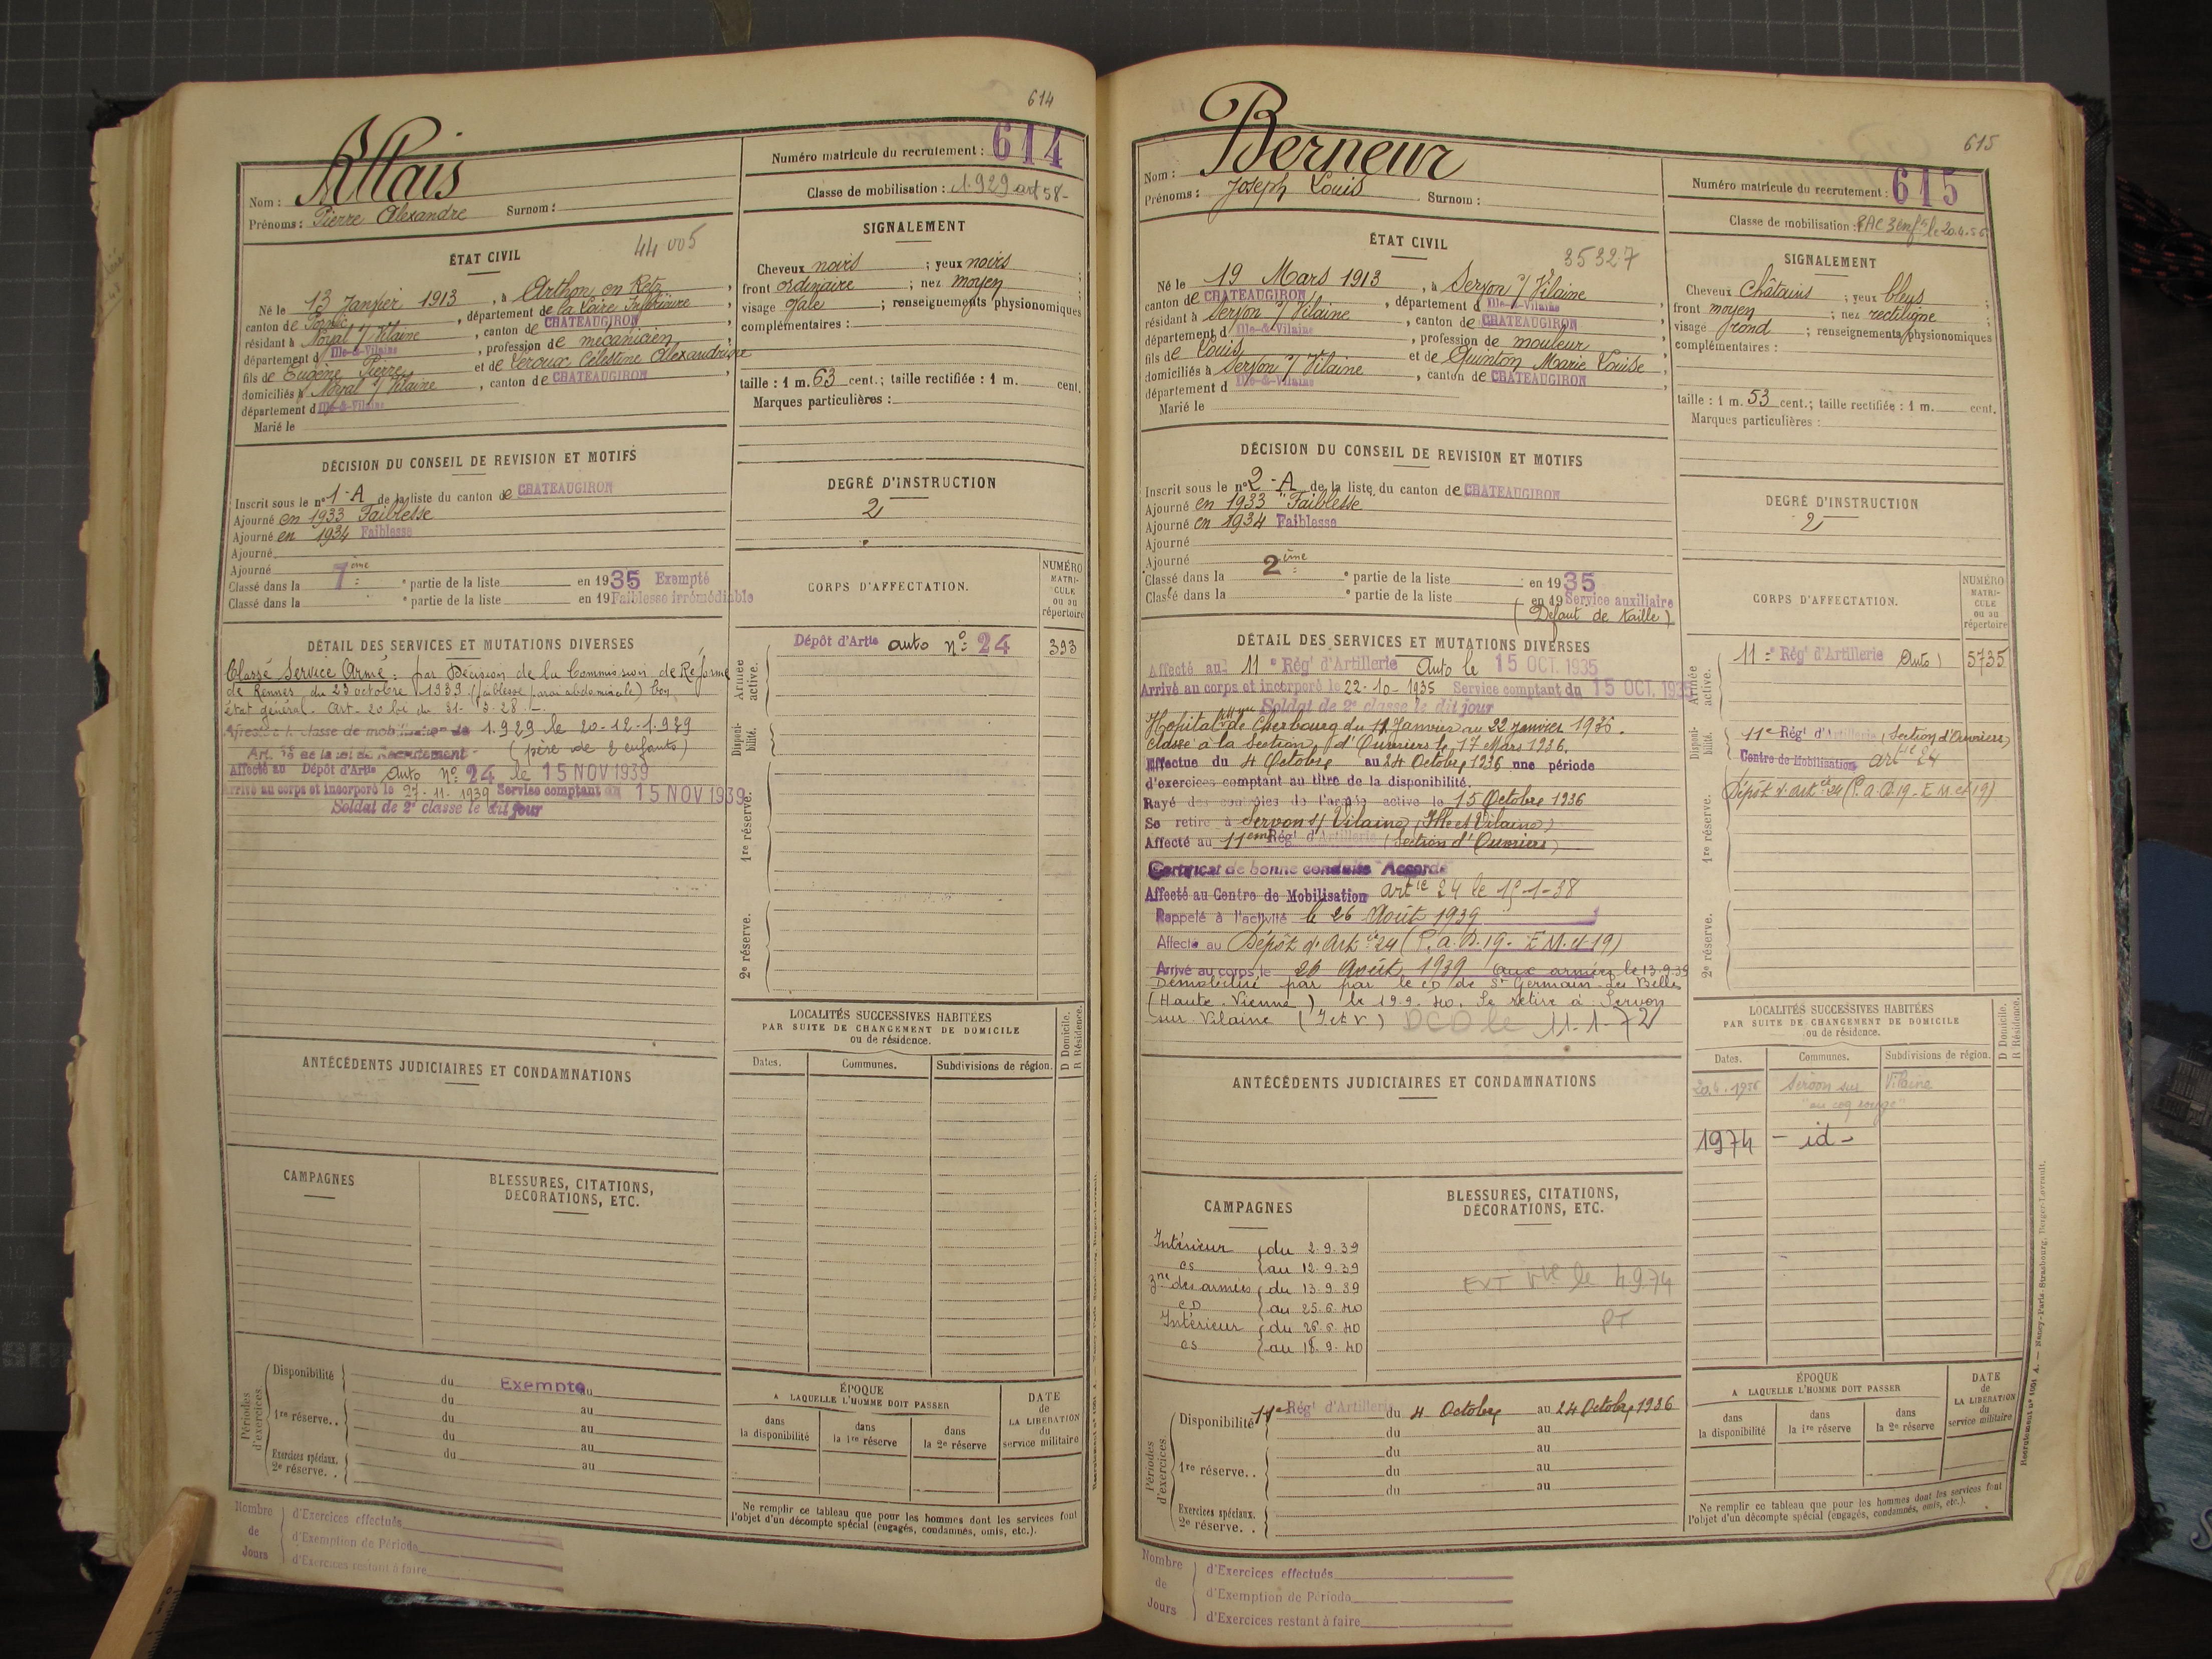 614
Allais
Nom :
Prénoms : Pierre Alexandre Surnom :
Numéro matricule du recrutement : 614
Classe de mobilisation : 1.929 art 58-
ÉTAT CIVIL
44.005
Né le 13 Janvier 1913, à Arthon en Retz,
canton de Pornic, département de la Loire Inférieure,
résidant à Noyal s/ Vilaine, canton de CHATEAUGIRON,
département d Ille-&-Vilaine, profession de mécanicien,
fils de Eugène Pierre et de Leroux Célestine Alexandrine
domiciliés à Noyal s/ Vilaine, canton de CHATEAUGIRON,
département d Ille-&-Vilaine
Marié le
SIGNALEMENT
Cheveux noirs ; yeux noirs ;
front ordinaire ; nez moyen ;
visage ovale ; renseignements physionomiques
complémentaires :
taille : 1 m. 63 cent.; taille rectifiée : 1 m. cent.
Marques particulières :
DÉCISION DU CONSEIL DE REVISION ET MOTIFS
Inscrit sous le n° 1-A de la liste du canton de CHATEAUGIRON
Ajourné en 1933 Faiblesse
Ajourné en 1934 Faiblesse
Ajourné
Ajourné
Classé dans la 1ème partie de la liste en 1935 Exempté
Classé dans la e partie de la liste en 19 Faiblesse irrémédiable
DEGRÉ D'INSTRUCTION
2
DÉTAIL DES SERVICES ET MUTATIONS DIVERSES
Classé Service Armé : par Décision de la Commission de Réforme
de Rennes du 23 octobre 1939 (faiblesse paroi abdominale) bon
état général. Art. 20 loi du 31-3-28.
Affecté à la classe de mobilisation de 1.929 le 20-12-1.939
Art. 58 de la loi de Recrutement - (père de 2 enfants)
Affecté au Dépôt d'Artie auto N° 24 le 15 NOV 1939
Arrivé au corps et incorporé le 27-11-1939 Service comptant du 15 NOV 1939
Soldat de 2e classe le dit jour
CORPS D'AFFECTATION.
NUMÉRO MATRICULE ou au répertoire
Armée active.
Dépôt d'Artie auto n° 24
393
Disponibilité.
1re réserve.
2e réserve.
LOCALITÉS SUCCESSIVES HABITÉES
PAR SUITE DE CHANGEMENT DE DOMICILE
ou de résidence.
D Domicile.
R Résidence.
Dates. Communes. Subdivisions de région.
ANTÉCÉDENTS JUDICIAIRES ET CONDAMNATIONS
CAMPAGNES
BLESSURES, CITATIONS,
DÉCORATIONS, ETC.
Périodes d'exercices.
Disponibilité du Exempté au
du au
1re réserve.. du au
du au
Exercices spéciaux. du au
2e réserve. .
ÉPOQUE
A LAQUELLE L'HOMME DOIT PASSER
dans la disponibilité
dans la 1re réserve
dans la 2e réserve
DATE
de
LA LIBÉRATION
du
service militaire
Ne remplir ce tableau que pour les hommes dont les services font
l'objet d'un décompte spécial (engagés, condamnés, omis, etc.).
Nombre de Jours
d'Exercices effectués
d'Exemption de Période
d'Exercices restant à faire
615
Berneur
Nom :
Prénoms : Joseph Louis Surnom :
Numéro matricule du recrutement : 615
Classe de mobilisation : le 20.4.56
ÉTAT CIVIL
35327
Né le 19 Mars 1913, à Servon s/ Vilaine
canton de CHATEAUGIRON, département d Ille-&-Vilaine,
résidant à Servon s/ Vilaine, canton de CHATEAUGIRON,
département d Ille-&-Vilaine, profession de mouleur,
fils de Louis et de Quinton Marie Louise,
domiciliés à Servon s/ Vilaine, canton de CHATEAUGIRON,
département d Ille-&-Vilaine
Marié le
SIGNALEMENT
Cheveux Châtains ; yeux bleus ;
front moyen ; nez rectiligne ;
visage rond ; renseignements physionomiques
complémentaires :
taille : 1 m. 53 cent.; taille rectifiée : 1 m. cent.
Marques particulières :
DÉCISION DU CONSEIL DE REVISION ET MOTIFS
Inscrit sous le n° 2-A de la liste du canton de CHATEAUGIRON
Ajourné en 1933 "Faiblesse"
Ajourné en 1934 Faiblesse
Ajourné
Ajourné
Classé dans la 2ème partie de la liste en 1935
Classé dans la e partie de la liste en 19 Service auxiliaire
(Défaut de taille)
DEGRÉ D'INSTRUCTION
2
DÉTAIL DES SERVICES ET MUTATIONS DIVERSES
Affecté au 11e Régt d'Artillerie Auto le 15 OCT. 1935
Arrivé au corps et incorporé le 22-10-1935 Service comptant du 15 OCT. 1935
Soldat de 2e classe le dit jour
Hopital de Cherbourg du 11 Janvier au 22 janvier 1936.
Classé à la Section d'Ouvriers le 17 Mars 1936.
Effectue du 4 Octobre au 24 Octobre 1936 une période
d'exercices comptant au titre de la disponibilité.
Rayé des contrôles de l'armée active le 15 Octobre 1936
Se retire à Servon s/ Vilaine (Ille et Vilaine)
Affecté au 11em Régt d'Artillerie (Section d'Ouvriers)
Certificat de bonne conduite "Accordé"
Affecté au Centre de Mobilisation Artie 24 le 15-1-38
Rappelé à l'activité le 26 Août 1939
Affecté au Dépôt d'Artie 24 (P.a.D. 19 - E M. et 19)
Arrivé au corps le 26 Août 1939 aux armées le 13.9.39
Démobilisé par par le CD de St Germain les Belles
(Haute Vienne) le 19.9.40. Se retire à Servon
sur Vilaine (I et V) DCD le 11-1-72
CORPS D'AFFECTATION.
NUMÉRO MATRICULE ou au répertoire
Armée active.
11e Régt d'Artillerie Auto
5735
Disponibilité.
11e Régt d'Artillerie (Section d'Ouvriers)
Centre de Mobilisation artie 24
1re réserve.
Dépôt d'artie 24 (P.a.D. 19 - E M. et 19)
2e réserve.
LOCALITÉS SUCCESSIVES HABITÉES
PAR SUITE DE CHANGEMENT DE DOMICILE
ou de résidence.
D Domicile.
R Résidence.
Dates. Communes. Subdivisions de région.
20.4.1956 Servon sur Vilaine
"au coq rouge"
1974 - id -
ANTÉCÉDENTS JUDICIAIRES ET CONDAMNATIONS
CAMPAGNES
Intérieur du 2.9.39
CS au 12.9.39
Zne des armées du 13.9.39
CD au 25.6.40
Intérieur du 26.6.40
CS au 18.9.40
BLESSURES, CITATIONS,
DÉCORATIONS, ETC.
EXT le 4.9.74
PT
Périodes d'exercices.
Disponibilité 11e Régt d'Artillerie du 4 Octobre au 24 Octobre 1936
du au
1re réserve.. du au
du au
du au
Exercices spéciaux.
2e réserve. .
ÉPOQUE
A LAQUELLE L'HOMME DOIT PASSER
dans la disponibilité
dans la 1re réserve
dans la 2e réserve
DATE
de
LA LIBÉRATION
du
service militaire
Ne remplir ce tableau que pour les hommes dont les services font
l'objet d'un décompte spécial (engagés, condamnés, omis, etc.).
Nombre de Jours
d'Exercices effectués
d'Exemption de Période
d'Exercices restant à faire
Recrutement n° 1601 A. — Nancy-Paris-Strasbourg, Berger-Levrault.